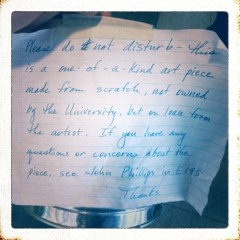 Please do not disturb - this
is a one-of-a-kind art piece
made from scratch, not owned
by the University, but on loan from
the artist. If you have any
questions or concerns about the
piece, see John Phillips in E195
Thanks